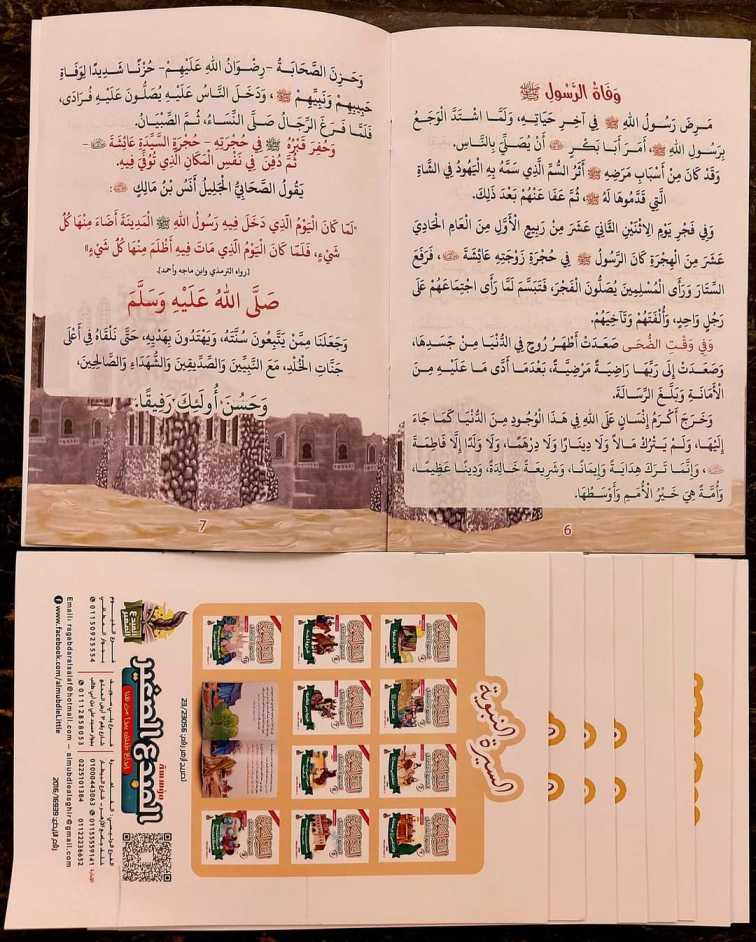 وَفَاةُ الرَّسُولِ ﷺ
مَرِضَ رَسُولُ اللهِ ﷺ فِي آخِرِ حَيَاتِهِ، وَلَمَّا اشْتَدَّ الْوَجَعُ
بِرَسُولِ اللهِ ﷺ، أَمَرَ أَبَا بَكْرٍ أَنْ يُصَلِّيَ بِالنَّاسِ.
وَقَدْ كَانَ مِنْ أَسْبَابِ مَرَضِهِ ﷺ أَثَرُ السُّمِّ الَّذِي سَمَّهُ بِهِ الْيَهُودُ فِي الشَّاةِ
الَّتِي قَدَّمُوهَا لَهُ ﷺ، ثُمَّ عَفَا عَنْهُمْ بَعْدَ ذَلِكَ.
وَفِي فَجْرِ يَوْمِ الِاثْنَيْنِ الثَّانِيَ عَشَرَ مِنْ رَبِيعِ الْأَوَّلِ مِنَ الْعَامِ الْحَادِيَ
عَشَرَ مِنَ الْهِجْرَةِ كَانَ الرَّسُولُ ﷺ فِي حُجْرَةِ زَوْجَتِهِ عَائِشَةَ، فَرَفَعَ
السِّتَارَ وَرَأَى الْمُسْلِمِينَ يُصَلُّونَ الْفَجْرَ، فَتَبَسَّمَ لَمَّا رَأَى اجْتِمَاعَهُمْ عَلَى
رَجُلٍ وَاحِدٍ، وَأُلْفَتَهُمْ وَتَآخِيَهُمْ.
وَفِي وَقْتِ الضُّحَى صَعَدَتْ أَطْهَرُ رُوحٍ فِي الدُّنْيَا مِنْ جَسَدِهَا،
وَصَعَدَتْ إِلَى رَبِّهَا رَاضِيَةً مَرْضِيَّةً، بَعْدَمَا أَدَّى مَا عَلَيْهِ مِنَ
الْأَمَانَةِ وَبَلَّغَ الرِّسَالَةَ.
وَخَرَجَ أَكْرَمُ إِنْسَانٍ عَلَى اللهِ فِي هَذَا الْوُجُودِ مِنَ الدُّنْيَا كَمَا جَاءَ
إِلَيْهَا، وَلَمْ يَتْرُكْ مَالًا وَلَا دِينَارًا وَلَا دِرْهَمًا، وَلَا وَلَدًا إِلَّا فَاطِمَةَ
، وَإِنَّمَا تَرَكَ هِدَايَةً وَإِيمَانًا، وَشَرِيعَةً خَالِدَةً، وَدِينًا عَظِيمًا،
وَأُمَّةً هِيَ خَيْرُ الْأُمَمِ وَأَوْسَطُهَا.
6
وَحَزِنَ الصَّحَابَةُ -رِضْوَانُ اللهِ عَلَيْهِمْ- حُزْنًا شَدِيدًا لِوَفَاةِ
حَبِيبِهِمْ وَنَبِيِّهِمْ ﷺ، وَدَخَلَ النَّاسُ عَلَيْهِ يُصَلُّونَ عَلَيْهِ فُرَادَى،
فَلَمَّا فَرَغَ الرِّجَالُ صَلَّى النِّسَاءُ، ثُمَّ الصِّبْيَانُ.
وَحُفِرَ قَبْرُهُ ﷺ فِي حُجْرَتِهِ - حُجْرَةِ السَّيِّدَةِ عَائِشَةَ -
ثُمَّ دُفِنَ فِي نَفْسِ الْمَكَانِ الَّذِي تُوُفِّيَ فِيهِ.
يَقُولُ الصَّحَابِيُّ الْجَلِيلُ أَنَسُ بْنُ مَالِكٍ :
"لَمَّا كَانَ الْيَوْمُ الَّذِي دَخَلَ فِيهِ رَسُولُ اللهِ ﷺ الْمَدِينَةَ أَضَاءَ مِنْهَا كُلُّ
شَيْءٍ، فَلَمَّا كَانَ الْيَوْمُ الَّذِي مَاتَ فِيهِ أَظْلَمَ مِنْهَا كُلُّ شَيْءٍ"
[رواه الترمذي وابن ماجه وأحمد].
صَلَّى اللهُ عَلَيْهِ وَسَلَّمَ
وَجَعَلَنَا مِمَّنْ يَتَّبِعُونَ سُنَّتَهُ، وَيَهْتَدُونَ بِهَدْيِهِ، حَتَّى نَلْقَاهُ فِي أَعْلَى
جَنَّاتِ الْخُلْدِ، مَعَ النَّبِيِّينَ وَالصِّدِّيقِينَ وَالشُّهَدَاءِ وَالصَّالِحِينَ،
وَحَسُنَ أُولَئِكَ رَفِيقًا.
7
السيرة النبوية
تصريح أزهر رقم: 23/23056
مؤسسة
المبدع الصغير
إبداع طفلك يبدأ من هنا
المبدع الصغير
01150925554
01112858053
01000443063 01155559141
0225101384 01122236632
Email: ragabdaralsalaf@hotmail.com – almubdie3lsghir@gmail.com
www.facebook.com/almubdieLittle
رقم الإيداع: 2016/16939